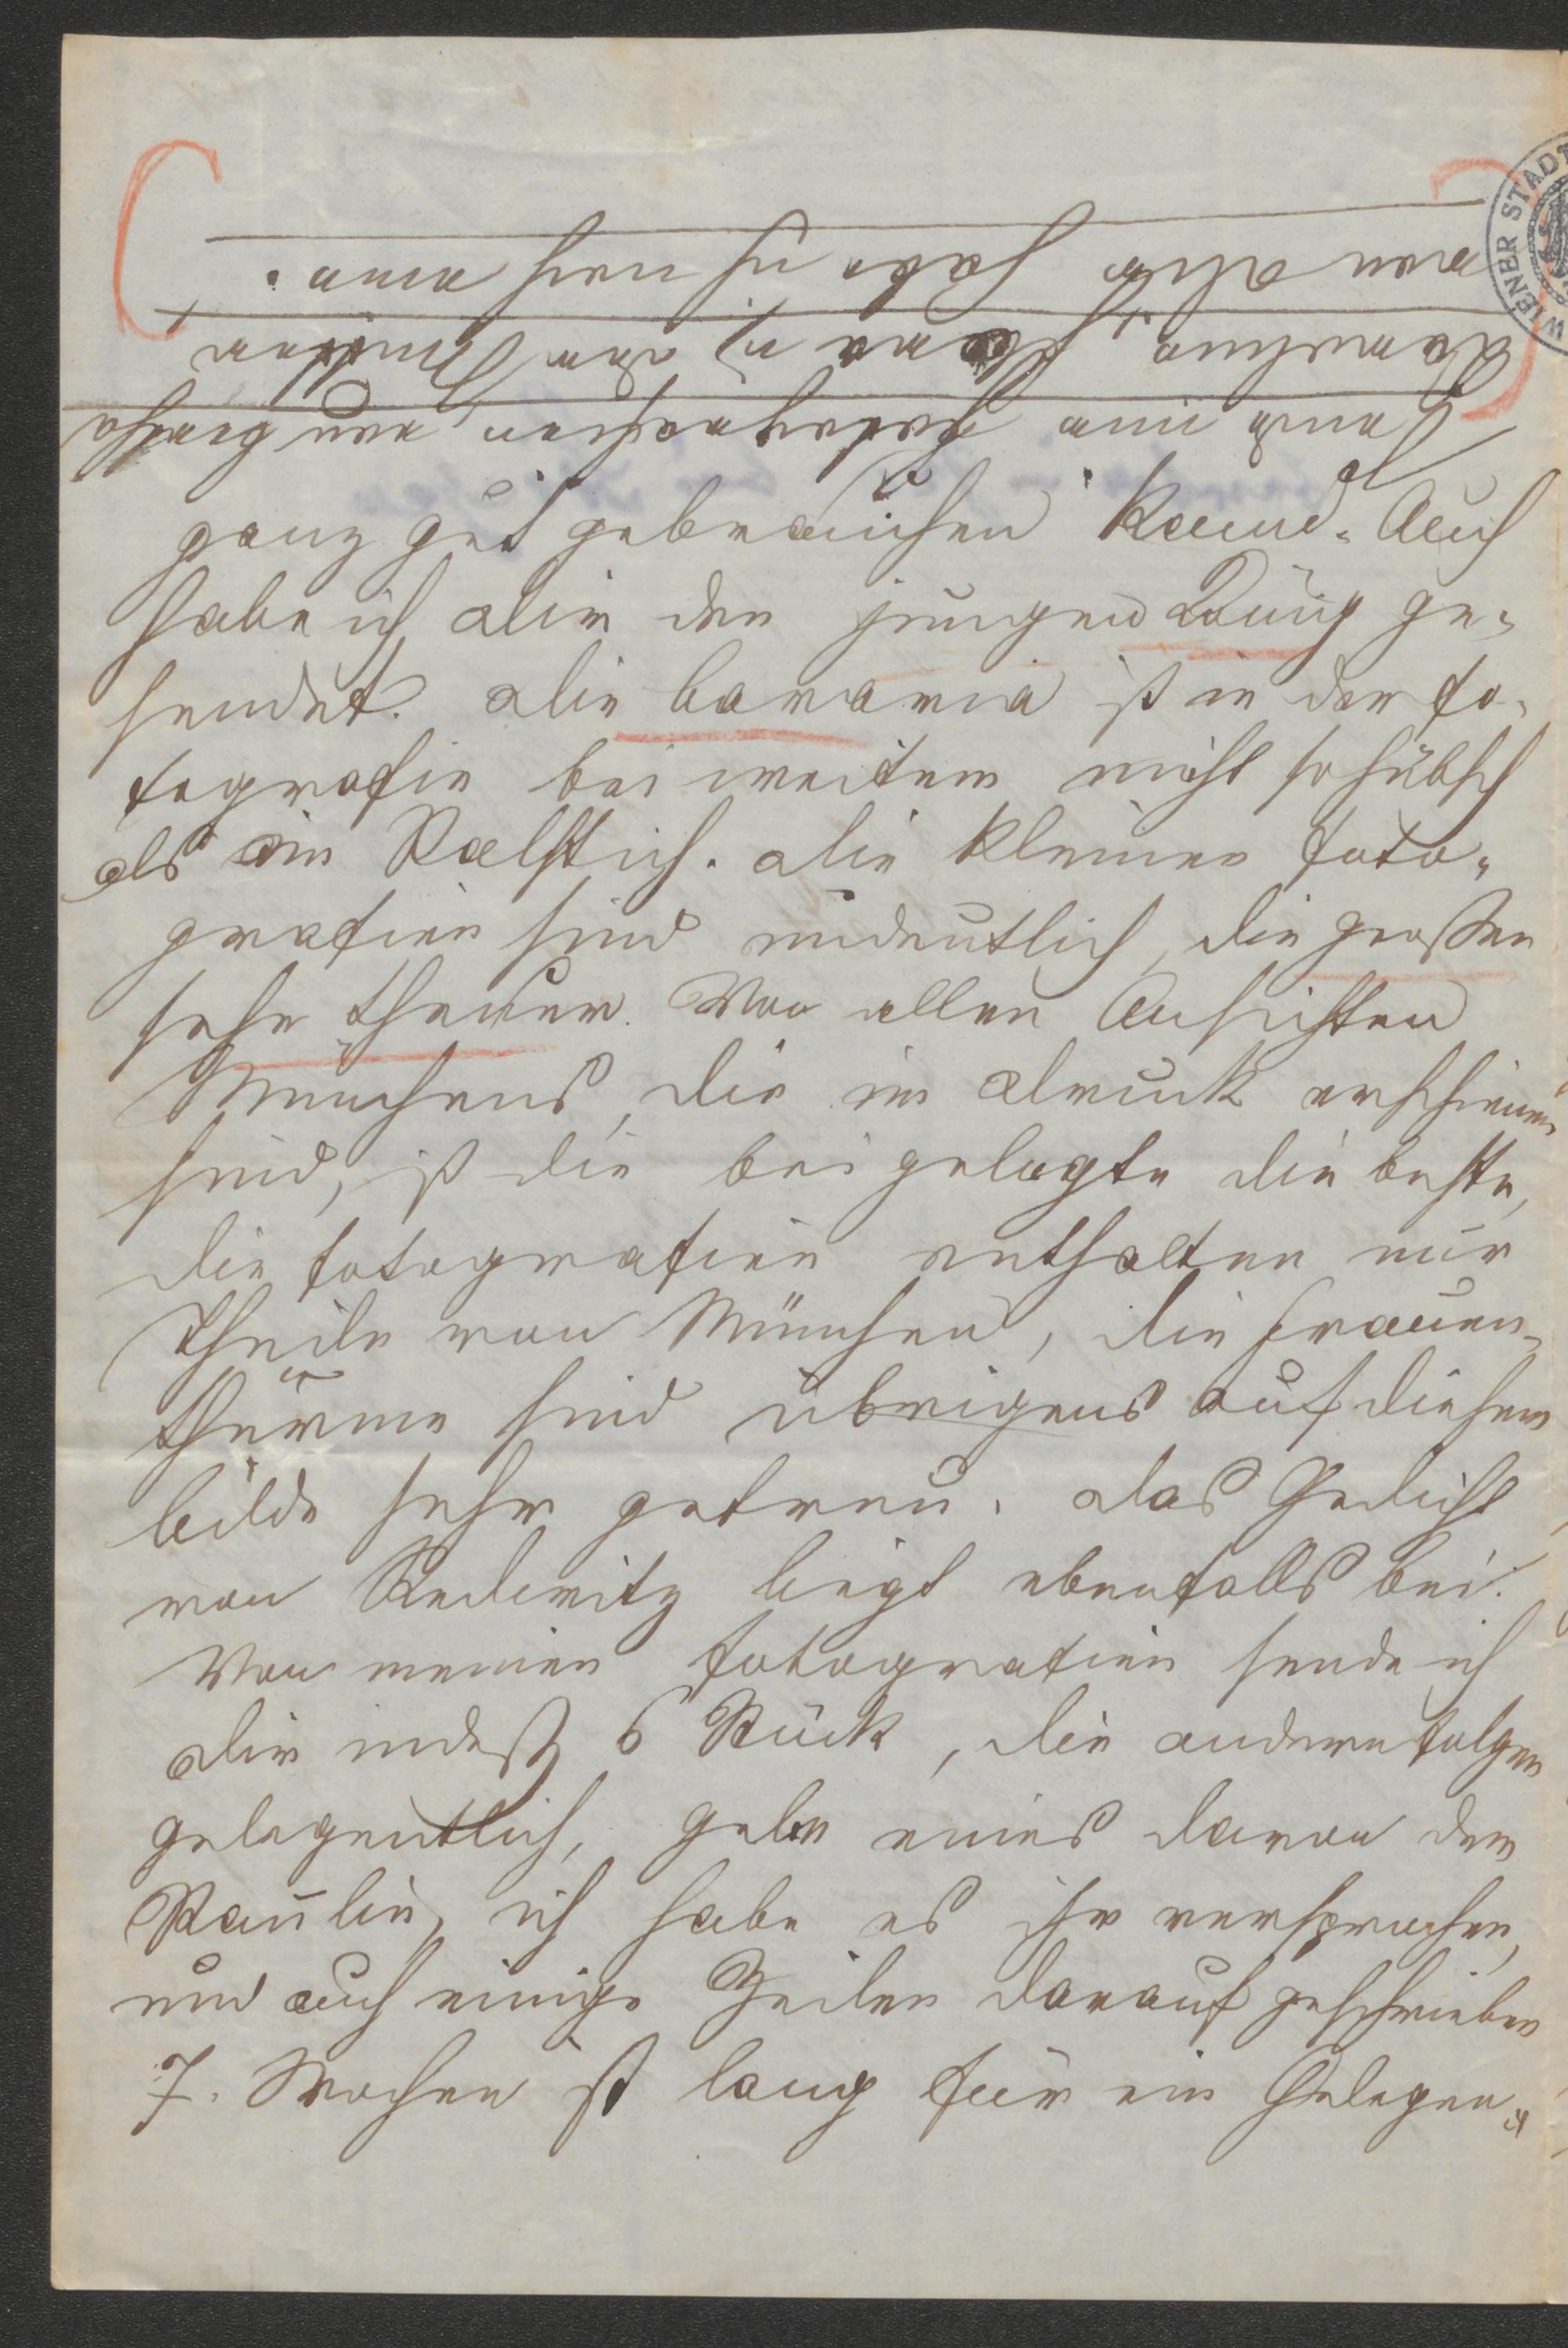 ganz gut gebrauchen kann. Auch
habe ich dir den jungen König ge-
sendet. die bavaria ist in der fo-
tografie bei weitem nicht so hübsch
als im Stalstich. die kleinen foto-
grafien sind undeutlich, die großen
sehr theuer. Von allen Ansichten
Münchens, die im druck erschienen
sind, ist die beigelegte die beste,
die fotografien enthalten nur
Theile von München, die Frauen-
thürme sind übrigens auf diesem
bilde sehr getreu. das Gedicht
von Redwitz liegt ebenfalls bei.
Von meinen fotografien sende ich
dir indeß 6 Stück, die anderen folgen
gelegentlich, gebe eines davon der
Paulin, ich habe es ihr versprochen,
und auch einige Zeilen darauf geschrieben
7. Wochen ist lang für ein Gelegen-
von dir habe ich noch eine.
WIENER STADT